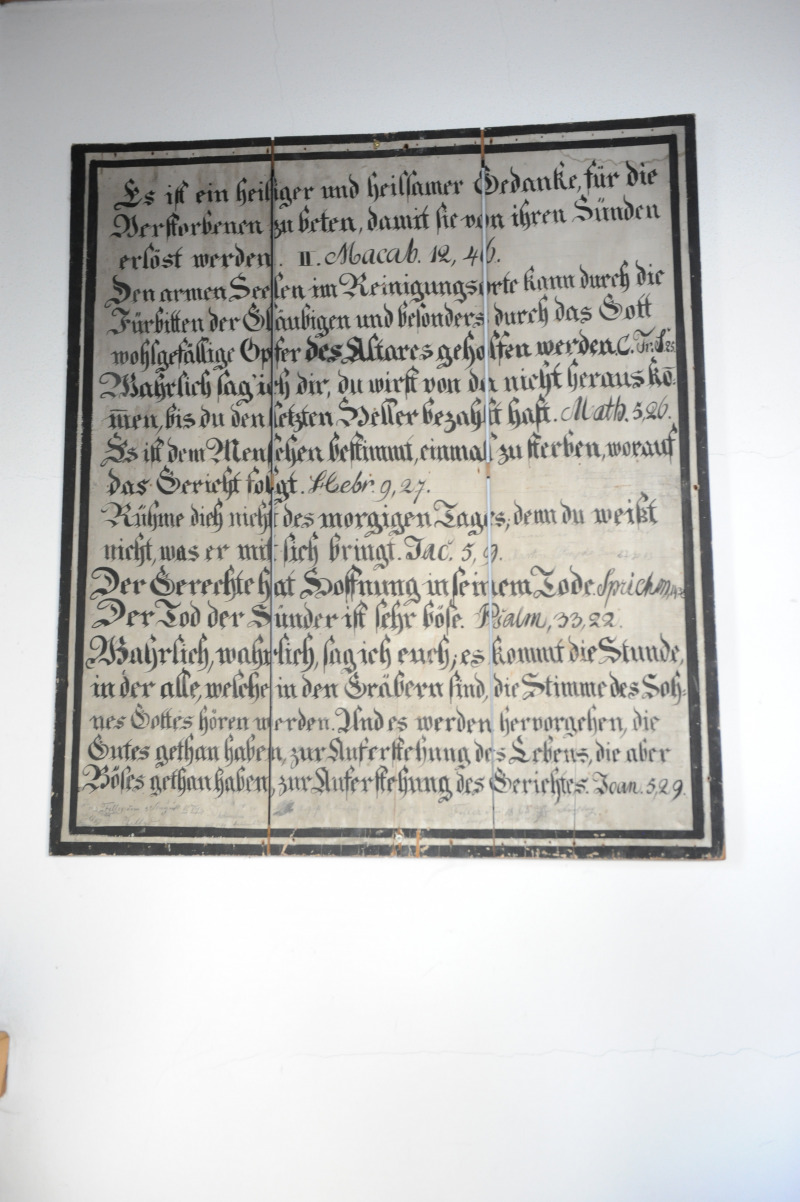 Es ist ein heiliger und heilsamer Gedanke, für die
Verstorbenen zu beten, damit sie von ihren Sünden
erlöst werden. II. Macab. 12, 46.
Den armen Seelen im Reinigungsorte kann durch die
Fürbitten der Gläubigen und besonders durch das Gott
wohlgefällige Opfer des Altares geholfen werden. C. Tr. S. 25.
Wahrlich sag' ich dir, du wirst von da nicht heraus kō-
m̄en, bis du den letzten Heller bezahlt hast. Math. 5, 26.
Es ist dem Menschen bestimmt, einmal zu sterben, worauf
das Gericht folgt. Hebr. 9, 27.
Rühme dich nicht des morgigen Tages; denn du weißt
nicht, was er mit sich bringt. Jac. 5, 9.
Der Gerechte hat Hoffnung in seinem Tode. Sprichw.
Der Tod der Sünder ist sehr böse. Psalm, 33, 22.
Wahrlich, wahrlich, sag ich euch; es kommt die Stunde,
in der alle, welche in den Gräbern sind, die Stimme des Soh-
nes Gottes hören werden. Und es werden hervorgehen, die
Gutes gethan haben, zur Auferstehung des Lebens, die aber
Böses gethan haben, zur Auferstehung des Gerichtes. Joan. 5, 29.